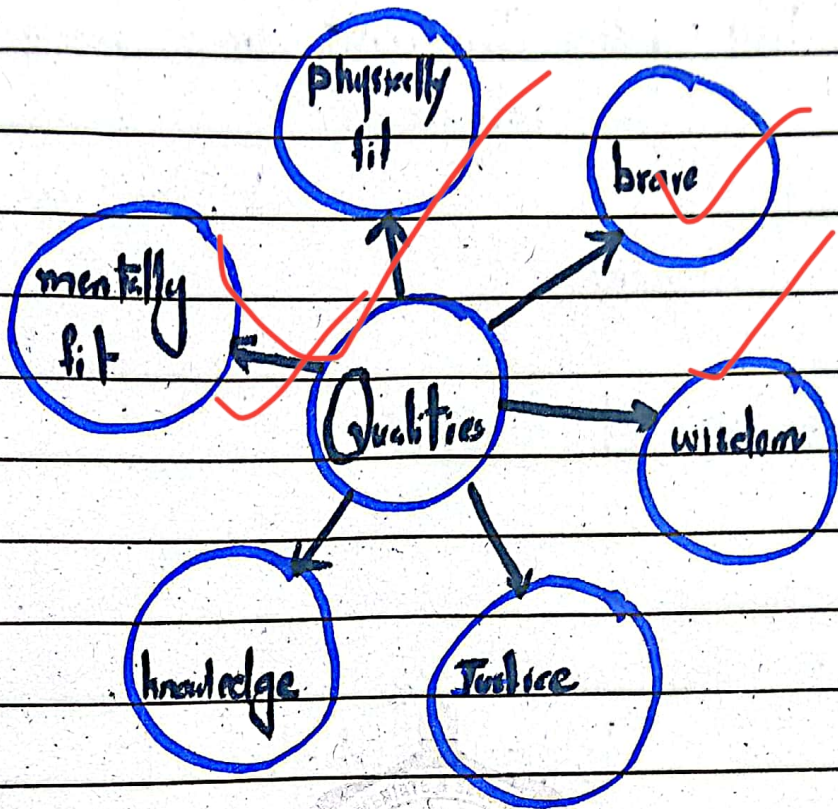 physically
fit
brave
mentally
fit
Qualities
wisdom
knowledge
Justice